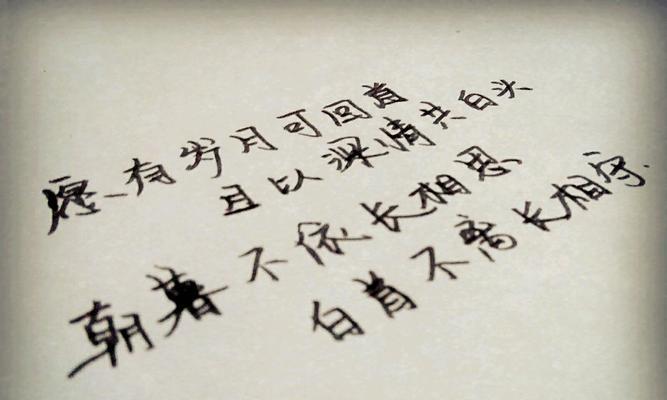 愿有岁月可回首
且以深情共白头
朝暮不依长相思
白首不离长相守